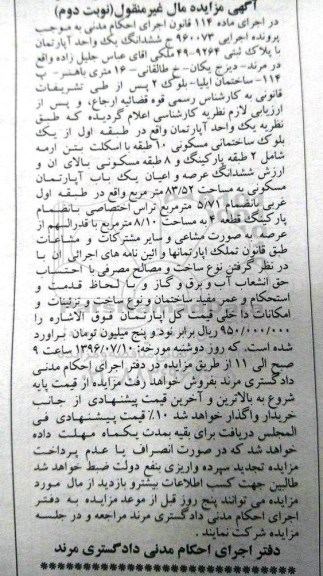 آگهی مزایده مال غیرمنقول(نوبت دوم)
در اجرای ماده ۱۱۴ قانون اجرای احکام مدنی به موجب
پرونده اجرایی ۹۶۰۰۷۳ ج ششدانگ یک واحد آپارتمان
با پلاک ثبتی ۹۲۶۴-۴۹ ملکی آقای عباس جلیل زاده واقع
در مرند- دیزج یکان-خ طالقانی- ۱۶ متری باهنر- پ
۱۱۴-ساختمان ایلیا-بلوک ۲ پس از طی تشریفات
قانونی به کارشناس رسمی قوه قضائیه ارجاع، و پس از
ارزیابی لازم نظریه کارشناسی اعلام گردیده که طبق
نظریه یک واحد آپارتمان واقع در طبقه اول از یک
بلوک ساختمانی مسکونی ۱۰ طبقه با اسکلت بتن آرمه
شامل ۲ طبقه پارکینگ و ۸ طبقه مسکونی بالای آن و
ارزش ششدانگ عرصه و اعیان یک باب آپارتمان
مسکونی به مساحت ۸۳/۵۲ متر مربع واقع در طبقه اول
غربی بانضمام ۵/۷۱ مترمربع تراس اختصاصی بانضمام
پارکینگ قطعه ۴ به مساحت ۸/۱۰ مترمربع با قدرالسهم از
عرصه به صورت مشاعی و سایر مشترکات و مشاعات
طبق قانون تملک آپارتمانها و آئین نامه های اجرائی آن با
در نظر گرفتن نوع ساخت و مصالح مصرفی با احتساب
حق انشعاب آب و برق و گاز و با لحاظ قدمت و
استحکام و عمر مفید ساختمان و نوع ساخت و تزئینات و
امکانات داخلی قیمت کل آپارتمان فوق الاشاره را
۹۵۰/۰۰۰/۰۰۰ ریال برابر نود و پنج میلیون تومان برآورد
شده است. که روز دوشنبه مورخه: ۱۳۹۶/۰۷/۱۰ ساعت ۹
صبح الی ۱۱ از طریق مزایده در دفتر اجرای احکام مدنی
دادگستری مرند بفروش خواهد رفت مزایده از قیمت پایه
شروع به بالاترین و آخرین قیمت پیشنهادی از جانب
خریدار واگذار خواهد شد ۱۰٪ قیمت پیشنهادی فی
المجلس دریافت برای بقیه بمدت یکماه مهلت داده
خواهد شد که در صورت انصراف یا عدم پرداخت
مزایده تجدید سپرده واریزی بنفع دولت ضبط خواهد شد
طالبین جهت کسب اطلاعات بیشترو بازدید از مال مورد
مزایده می توانند پنج روز قبل از موعد مزایده به دفتر
اجرای احکام مدنی دادگستری مرند مراجعه و در جلسه
مزایده شرکت نمایند.
دفتر اجرای احکام مدنی دادگستری مرند